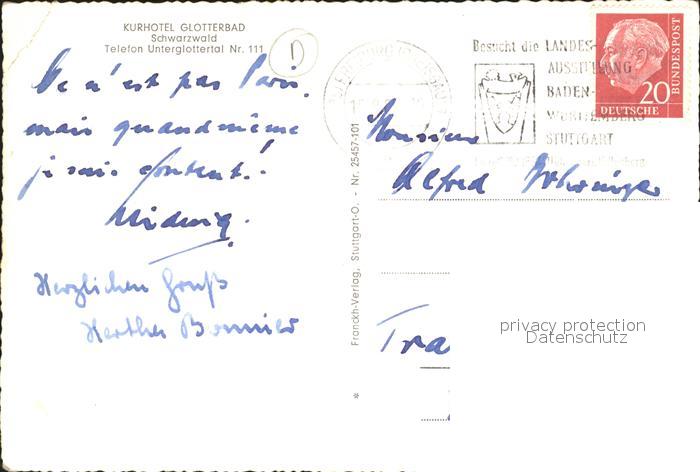 KURHOTEL GLOTTERBAD
Schwarzwald
Telefon Unterglottertal Nr. 111
D
Ce n'est pas Paris,
mais quand même
je suis content!
Herzlichen Gruß
Hertha
Franckh-Verlag, Stuttgart-O. - Nr. 25457-101
*
Besucht die LANDES-
AUSSTELLUNG
BADEN-
WÜRTTEMBERG
STUTTGART
DEUTSCHE
BUNDESPOST
20
Monsieur
Alfred
Tra
privacy protection
Datenschutz